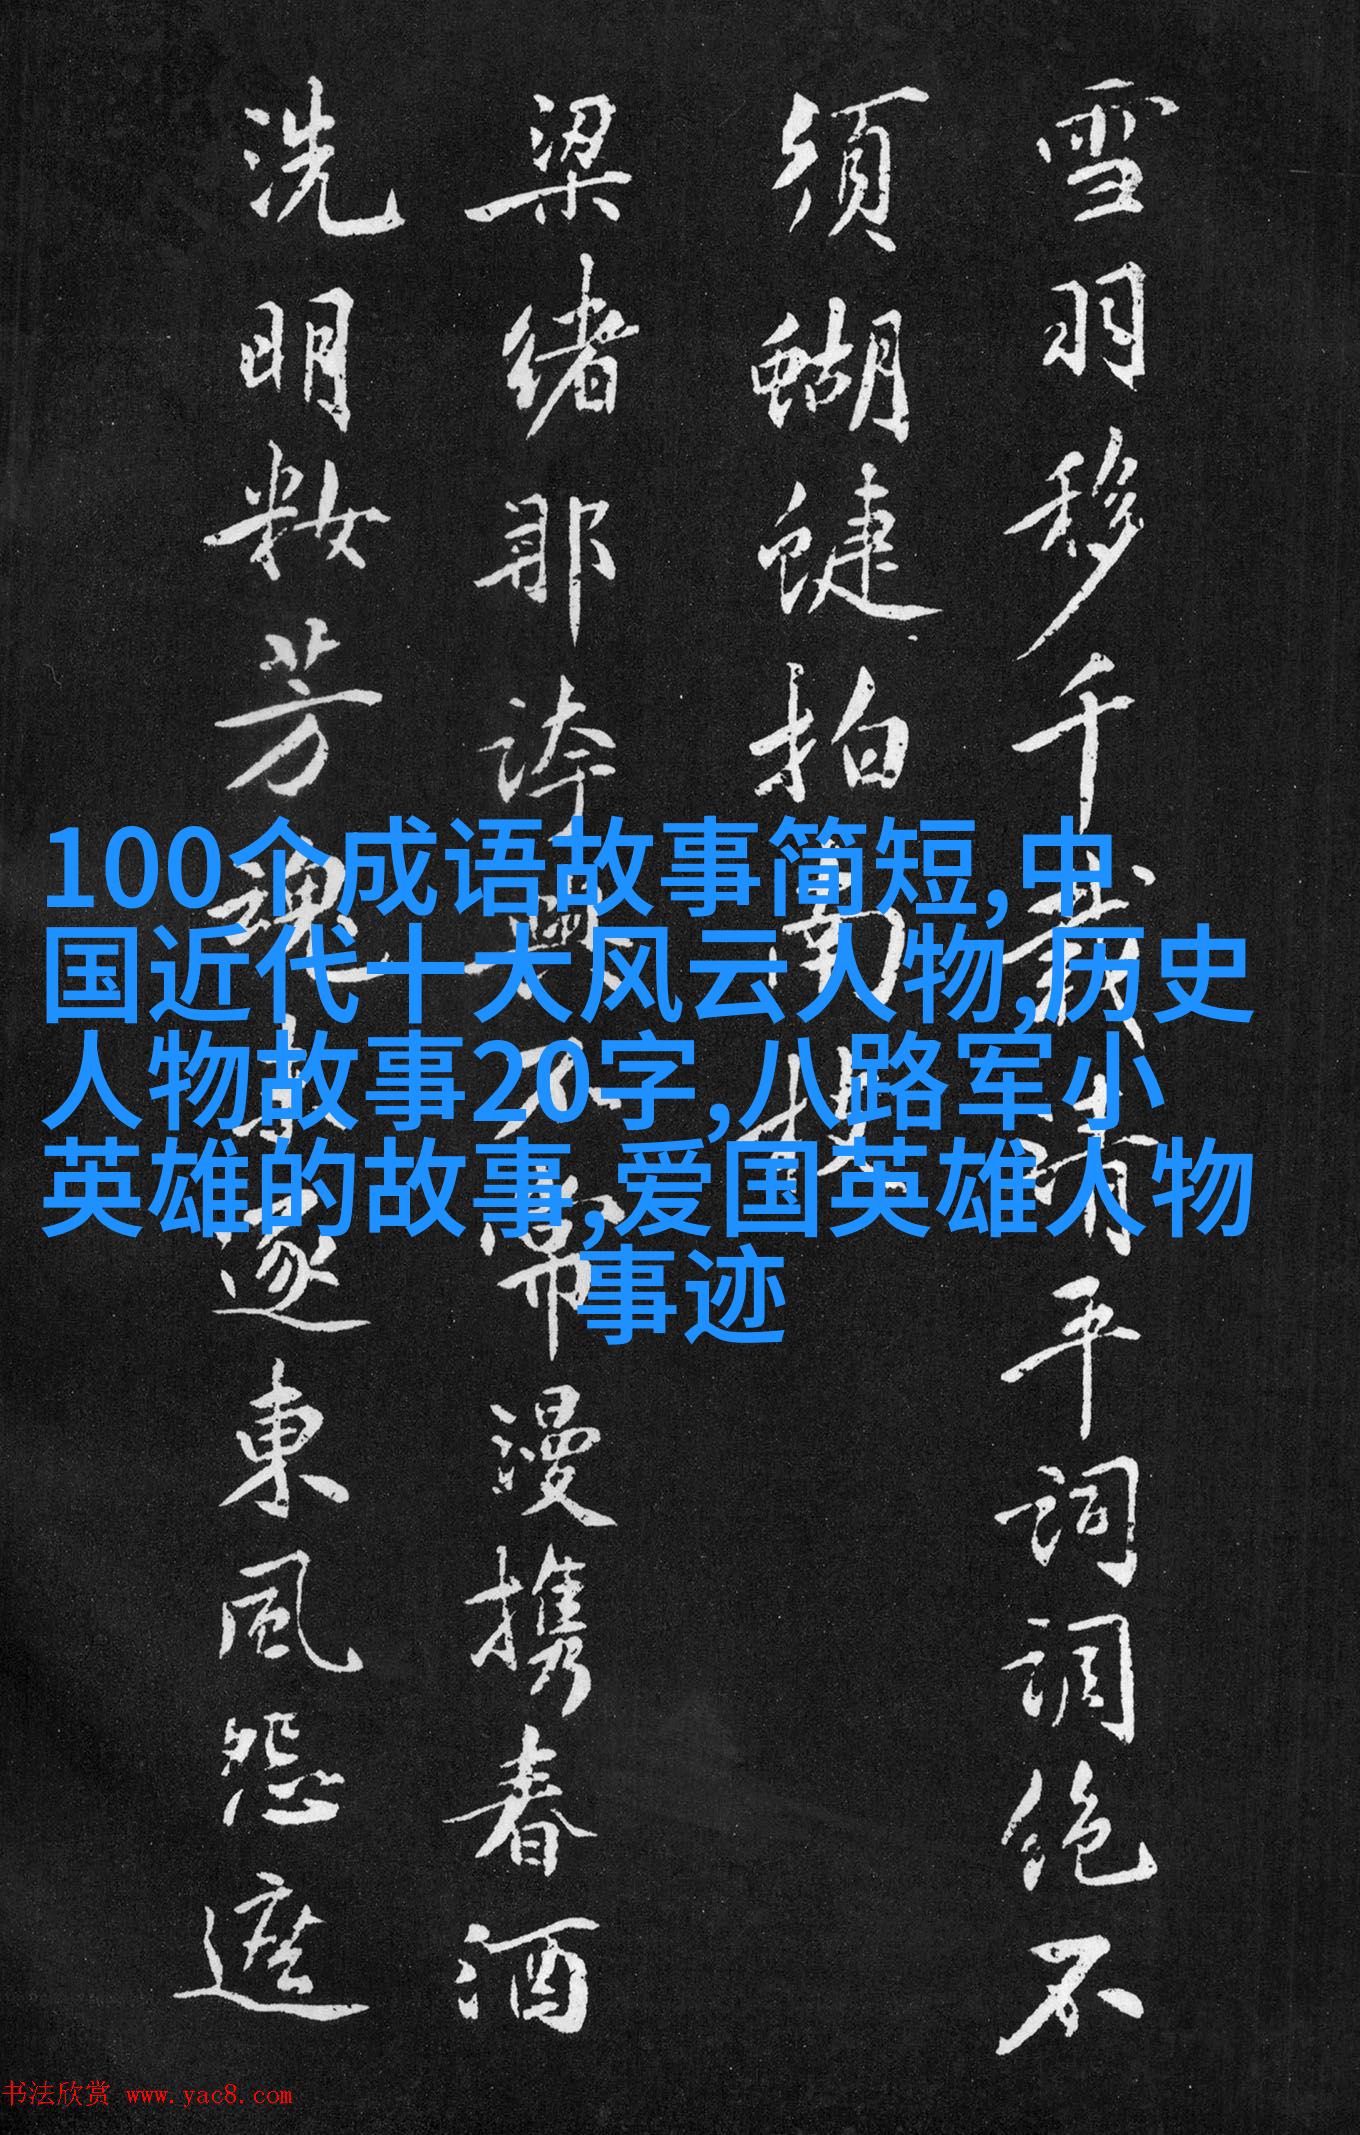 雪羽移千載清平詞調絶不
須蝴蜨拍南
梁緒那誇興不常漫携春酒
洗明籹芳魂逐東風怨遮
100个成语故事简短,中
国近代十大风云人物,历史
人物故事20字,八路军小
英雄的故事,爱国英雄人物
事迹
书法欣赏 www.yac8.com